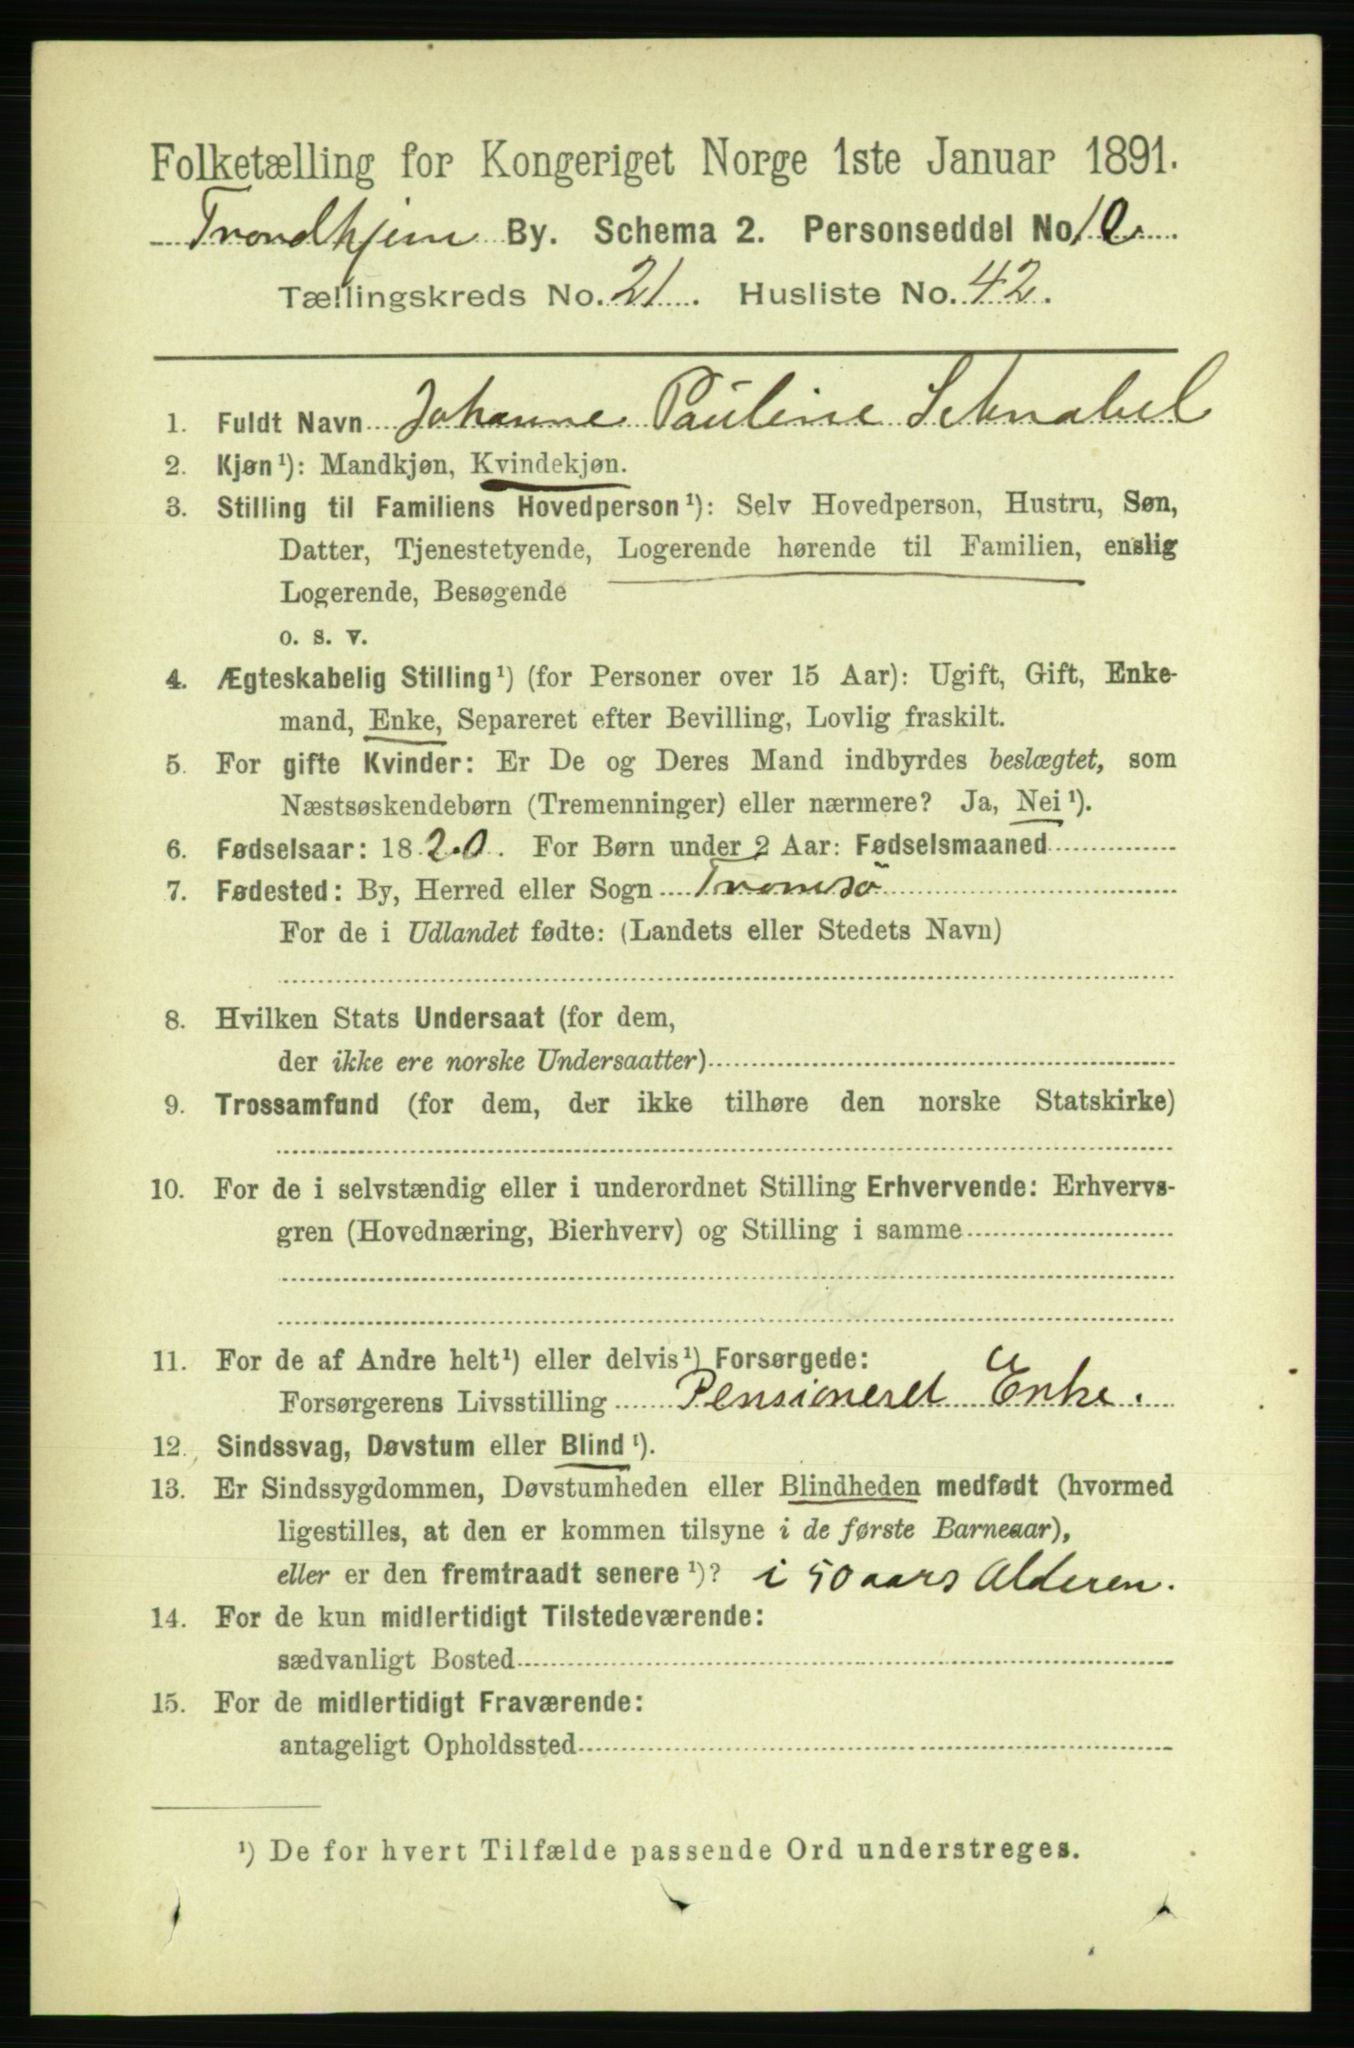 Folketælling for Kongeriget Norge 1ste Januar 1891.
Trondhjem By. Schema 2. Personseddel No 10.
Tællingskreds No. 21. Husliste No. 42.
1. Fuldt Navn Johanne Pauline Schnabel
2. Kjøn¹): Mandkjøn, Kvindekjøn.
3. Stilling til Familiens Hovedperson¹): Selv Hovedperson, Hustru, Søn,
Datter, Tjenestetyende, Logerende hørende til Familien, enslig
Logerende, Besøgende
o. s. v.
4. Ægteskabelig Stilling¹) (for Personer over 15 Aar): Ugift, Gift, Enke-
mand, Enke, Separeret efter Bevilling, Lovlig fraskilt.
5. For gifte Kvinder: Er De og Deres Mand indbyrdes beslægtet, som
Næstsøskendebørn (Tremenninger) eller nærmere? Ja, Nei¹).
6. Fødselsaar: 1820. For Børn under 2 Aar: Fødselsmaaned
7. Fødested: By, Herred eller Sogn Tromsö
For de i Udlandet fødte: (Landets eller Stedets Navn)
8. Hvilken Stats Undersaat (for dem,
der ikke ere norske Undersaatter)
9. Trossamfund (for dem, der ikke tilhøre den norske Statskirke)
10. For de i selvstændig eller i underordnet Stilling Erhvervende: Erhvervs-
gren (Hovednæring, Bierhverv) og Stilling i samme
11. For de af Andre helt¹) eller delvis¹) Forsørgede:
Forsørgerens Livsstilling Pensioneret Enke.
12. Sindssvag, Døvstum eller Blind¹).
13. Er Sindssygdommen, Døvstumheden eller Blindheden medfødt (hvormed
ligestilles, at den er kommen tilsyne i de første Barneaar),
eller er den fremtraadt senere¹)? i 50 aars Alderen.
14. For de kun midlertidigt Tilstedeværende:
sædvanligt Bosted
15. For de midlertidigt Fraværende:
antageligt Opholdssted
¹) De for hvert Tilfælde passende Ord understreges.